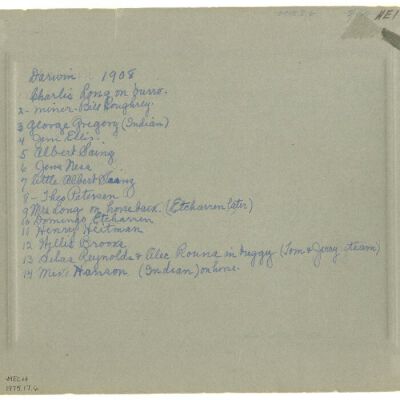 HE1
Darwin .. 1908
1 Charlie Long on burro.
2 - miner - Bill Houghrey.
3 George Gregory (Indian)
4 Jim Ellis.
5 Albert Saing
6 Jens Ness
7 little Albert Saing
8 - Theo Petersen
9 Mrs Long on horse back. (Etcharren later)
10 Domingo Etcharren
11 Henry Heitman
12 Willie Brooks
13 Silas Reynolds & Alec Rouna in buggy (Tom & Jerry team)
14 Mrs. Hanson (Indian) on horse.
1975.17.6